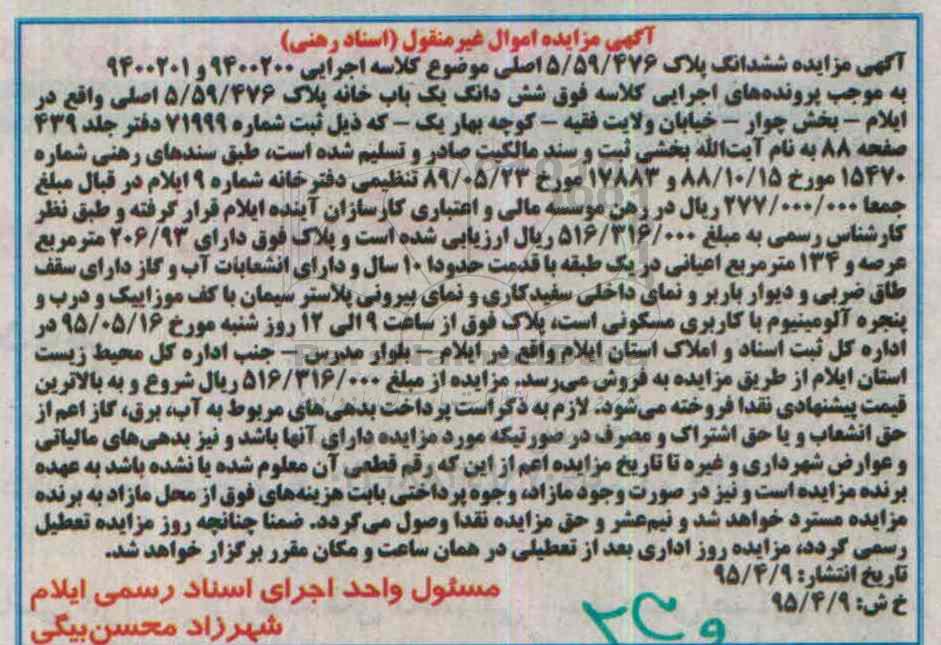 آگهی مزایده اموال غیرمنقول (اسناد رهنی)
آگهی مزایده ششدانگ پلاک ۵/۵۹/۴۷۶ اصلی موضوع کلاسه اجرایی ۹۴۰۰۲۰۰ و ۹۴۰۰۲۰۱
به موجب پرونده‌های اجرایی کلاسه فوق شش دانگ یک باب خانه پلاک ۵/۵۹/۴۷۶ اصلی واقع در
ایلام – بخش چوار – خیابان ولایت فقیه – کوچه بهار یک – که ذیل ثبت شماره ۷۱۹۹۹ دفتر جلد ۴۳۹
صفحه ۸۸ به نام آیت‌الله بخشی ثبت و سند مالکیت صادر و تسلیم شده است، طبق سندهای رهنی شماره
۱۵۴۷۰ مورخ ۸۸/۱۰/۱۵ و ۱۷۸۸۳ مورخ ۸۹/۰۵/۲۳ تنظیمی دفترخانه شماره ۹ ایلام در قبال مبلغ
جمعا ۲۷۷/۰۰۰/۰۰۰ ریال در رهن موسسه مالی و اعتباری کارسازان آینده ایلام قرار گرفته و طبق نظر
کارشناس رسمی به مبلغ ۵۱۶/۳۱۶/۰۰۰ ریال ارزیابی شده است و پلاک فوق دارای ۲۰۶/۹۳ مترمربع
عرصه و ۱۳۴ مترمربع اعیانی در یک طبقه با قدمت حدودا ۱۰ سال و دارای انشعابات آب و گاز دارای سقف
طاق ضربی و دیوار باربر و نمای داخلی سفیدکاری و نمای بیرونی پلاستر سیمان با کف موزاییک و درب و
پنجره آلومینیوم با کاربری مسکونی است، پلاک فوق از ساعت ۹ الی ۱۲ روز شنبه مورخ ۹۵/۰۵/۱۶ در
اداره کل ثبت اسناد و املاک استان ایلام واقع در ایلام – بلوار مدرس – جنب اداره کل محیط زیست
استان ایلام از طریق مزایده به فروش می‌رسد. مزایده از مبلغ ۵۱۶/۳۱۶/۰۰۰ ریال شروع و به بالاترین
قیمت پیشنهادی نقدا فروخته می‌شود. لازم به ذکر است پرداخت بدهی‌های مربوط به آب، برق، گاز اعم از
حق انشعاب و یا حق اشتراک و مصرف در صورتیکه مورد مزایده دارای آنها باشد و نیز بدهی‌های مالیاتی
و عوارض شهرداری و غیره تا تاریخ مزایده اعم از این که رقم قطعی آن معلوم شده یا نشده باشد به عهده
برنده مزایده است و نیز در صورت وجود مازاد، وجوه پرداختی بابت هزینه‌های فوق از محل مازاد به برنده
مزایده مسترد خواهد شد و نیم‌عشر و حق مزایده نقدا وصول می‌گردد. ضمنا چنانچه روز مزایده تعطیل
رسمی گردد، مزایده روز اداری بعد از تعطیلی در همان ساعت و مکان مقرر برگزار خواهد شد.
تاریخ انتشار: ۹۵/۴/۹
خ ش: ۹۵/۴/۹
مسئول واحد اجرای اسناد رسمی ایلام
شهرزاد محسن‌بیگی